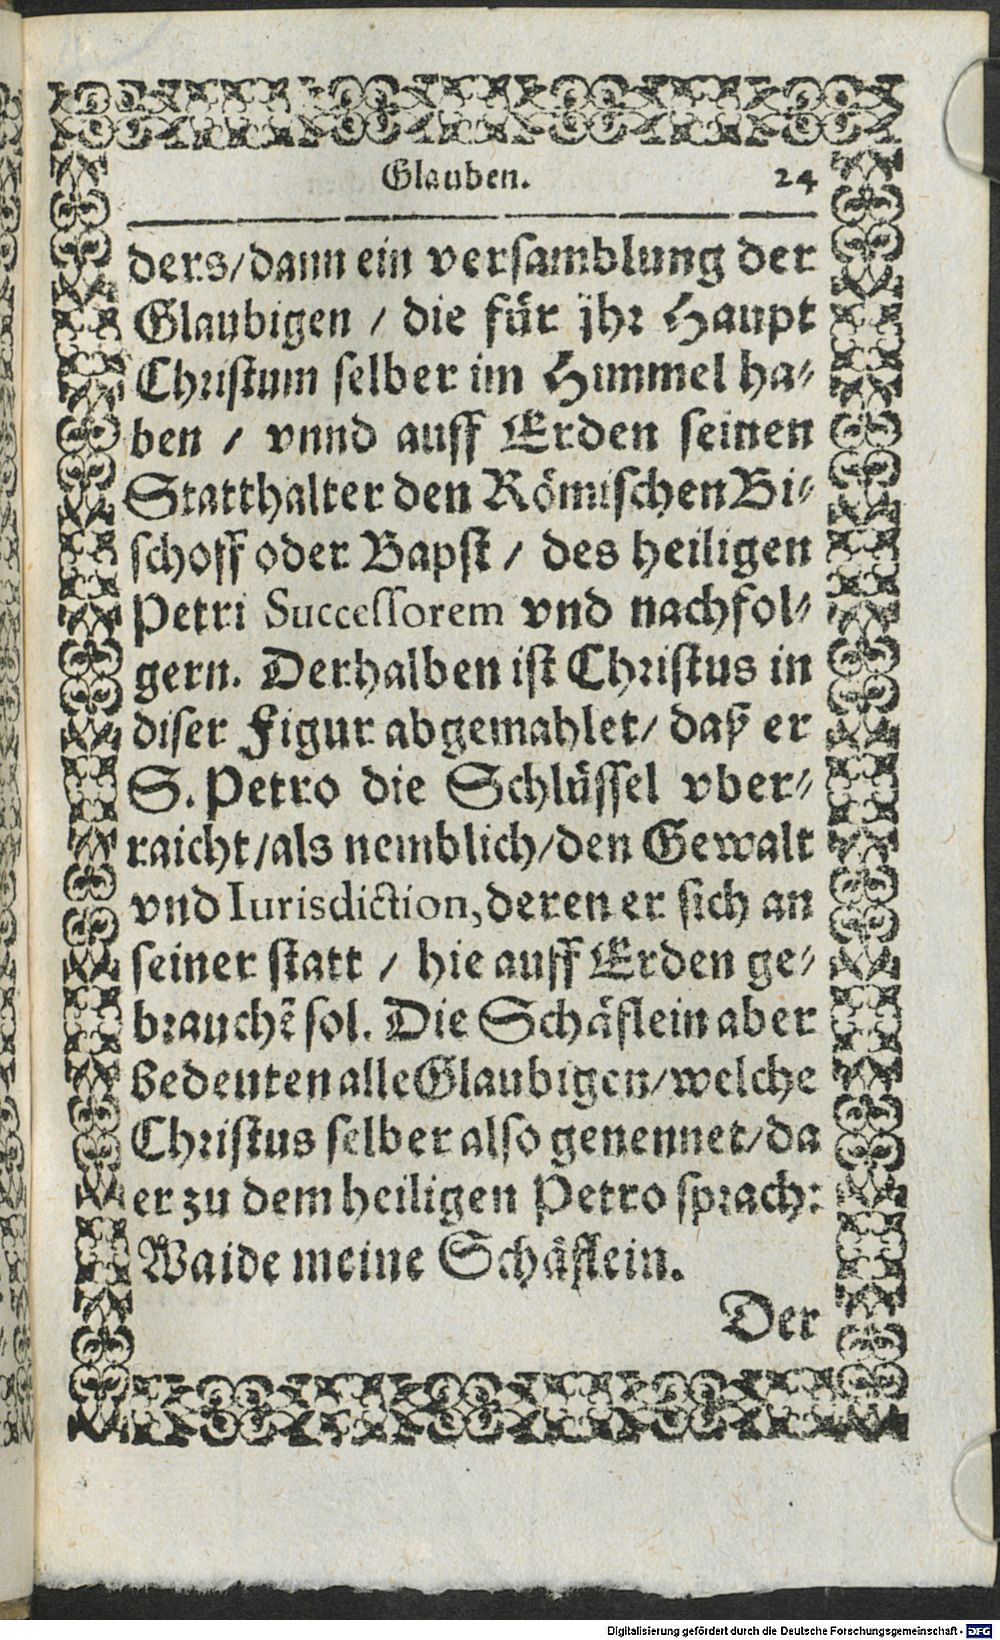 Glauben. 24
ders/dann ein versamblung der
Glaubigen / die für jhr Haupt
Christum selber im Himmel ha⸗
ben / vnnd auff Erden seinen
Statthalter den Römischen Bi⸗
schoff oder Bapst / des heiligen
Petri Successorem vnd nachfol⸗
gern. Derhalben ist Christus in
diser Figur abgemahlet/ daß er
S. Petro die Schlüssel vber⸗
raicht/als nemblich/den Gewalt
vnd Iurisdiction, deren er sich an
seiner statt / hie auff Erden ge⸗
brauchẽ sol. Die Schäflein aber
bedeuten alle Glaubigen/welche
Christus selber also genennet/da
er zu dem heiligen Petro sprach:
Waide meine Schäflein.
Der
Digitalisierung gefördert durch die Deutsche Forschungsgemeinschaft - DFG